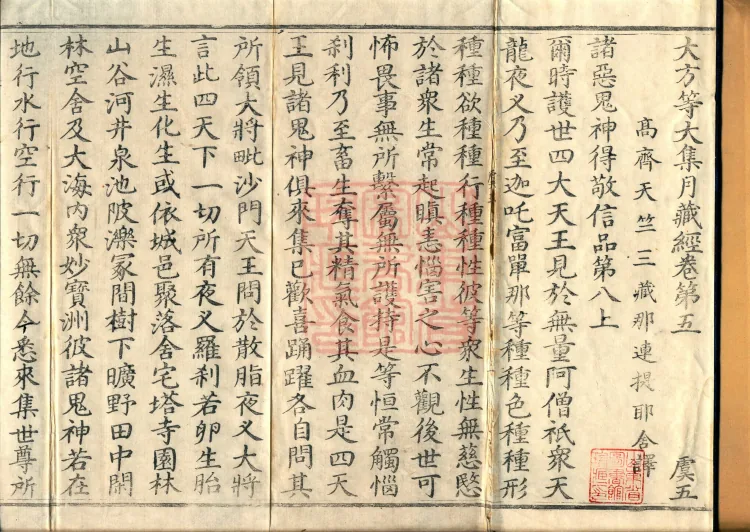 大方等大集月藏經卷第五　虞五
高齊天竺三藏那連提耶舍譯
諸惡鬼神得敬信品第八上
爾時護世四大天王見於無量阿僧祇衆天
龍夜叉乃至迦吒富單那等種種色種種形
種種欲種種行種種性彼等衆生性無慈愍
於諸衆生常起瞋恚惱害之心不觀後世可
怖畏事無所繫屬無所護持是等恒常觸惱
刹利乃至畜生奪其精氣食其血肉是四天
王見諸鬼神俱來集已歡喜踊躍各自問其
所領大將毗沙門天王問於散脂夜叉大將
言此四天下一切所有夜叉羅刹若卵生胎
生濕生化生或依城邑聚落舍宅塔寺園林
山谷河井泉池陂濼冢間樹下曠野田中閑
林空舍及大海內衆妙寶洲彼諸鬼神若在
地行水行空行一切無餘今悉來集世尊所